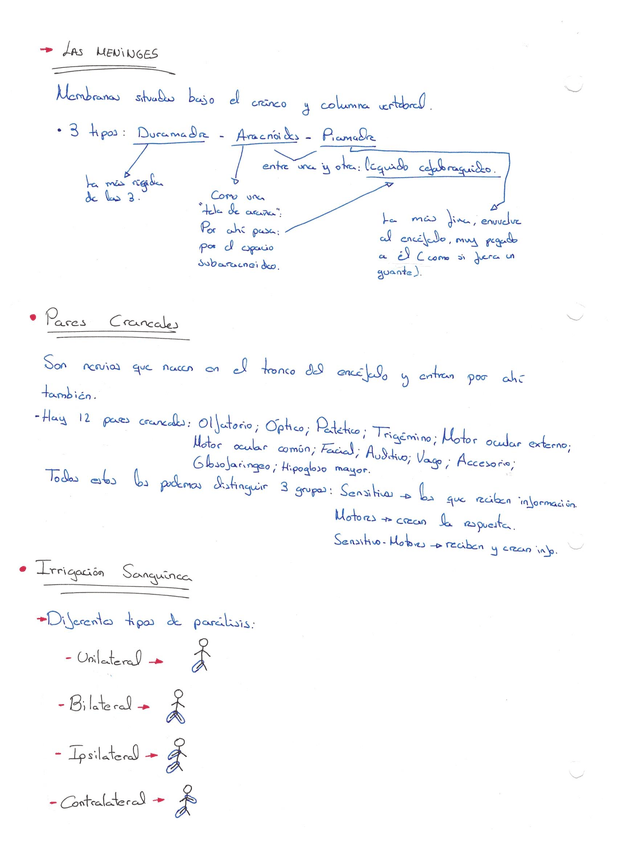 → LAS MENINGES
Membranas situadas bajo el cráneo y columna vertebral.
• 3 tipos: Duramadre - Aracnóides - Piamadre
entre una y otra: líquido cefalorraquídeo.
La más rígida
de las 3.
Como una
"tela de araña":
Por ahí pasa:
por el espacio
subaracnoideo.
La más fina, envuelve
al encéfalo, muy pegado
a él (como si fuera un
guante).
• Pares Craneales
Son nervios que nacen en el tronco del encéfalo y entran por ahí
también.
- Hay 12 pares craneales: Olfatorio; Óptico; Patético; Trigémino; Motor ocular externo;
Motor ocular común; Facial; Auditivo; Vago; Accesorio;
Glosofaringeo; Hipogloso mayor.
Todos estos los podemos distinguir 3 grupos: Sensitivos → los que reciben información
Motores → crean la respuesta.
Sensitivo-Motores → reciben y crean info.
• Irrigación Sanguínea
→ Diferentes tipos de parálisis:
- Unilateral →
- Bilateral →
- Ipsilateral →
- Contralateral →